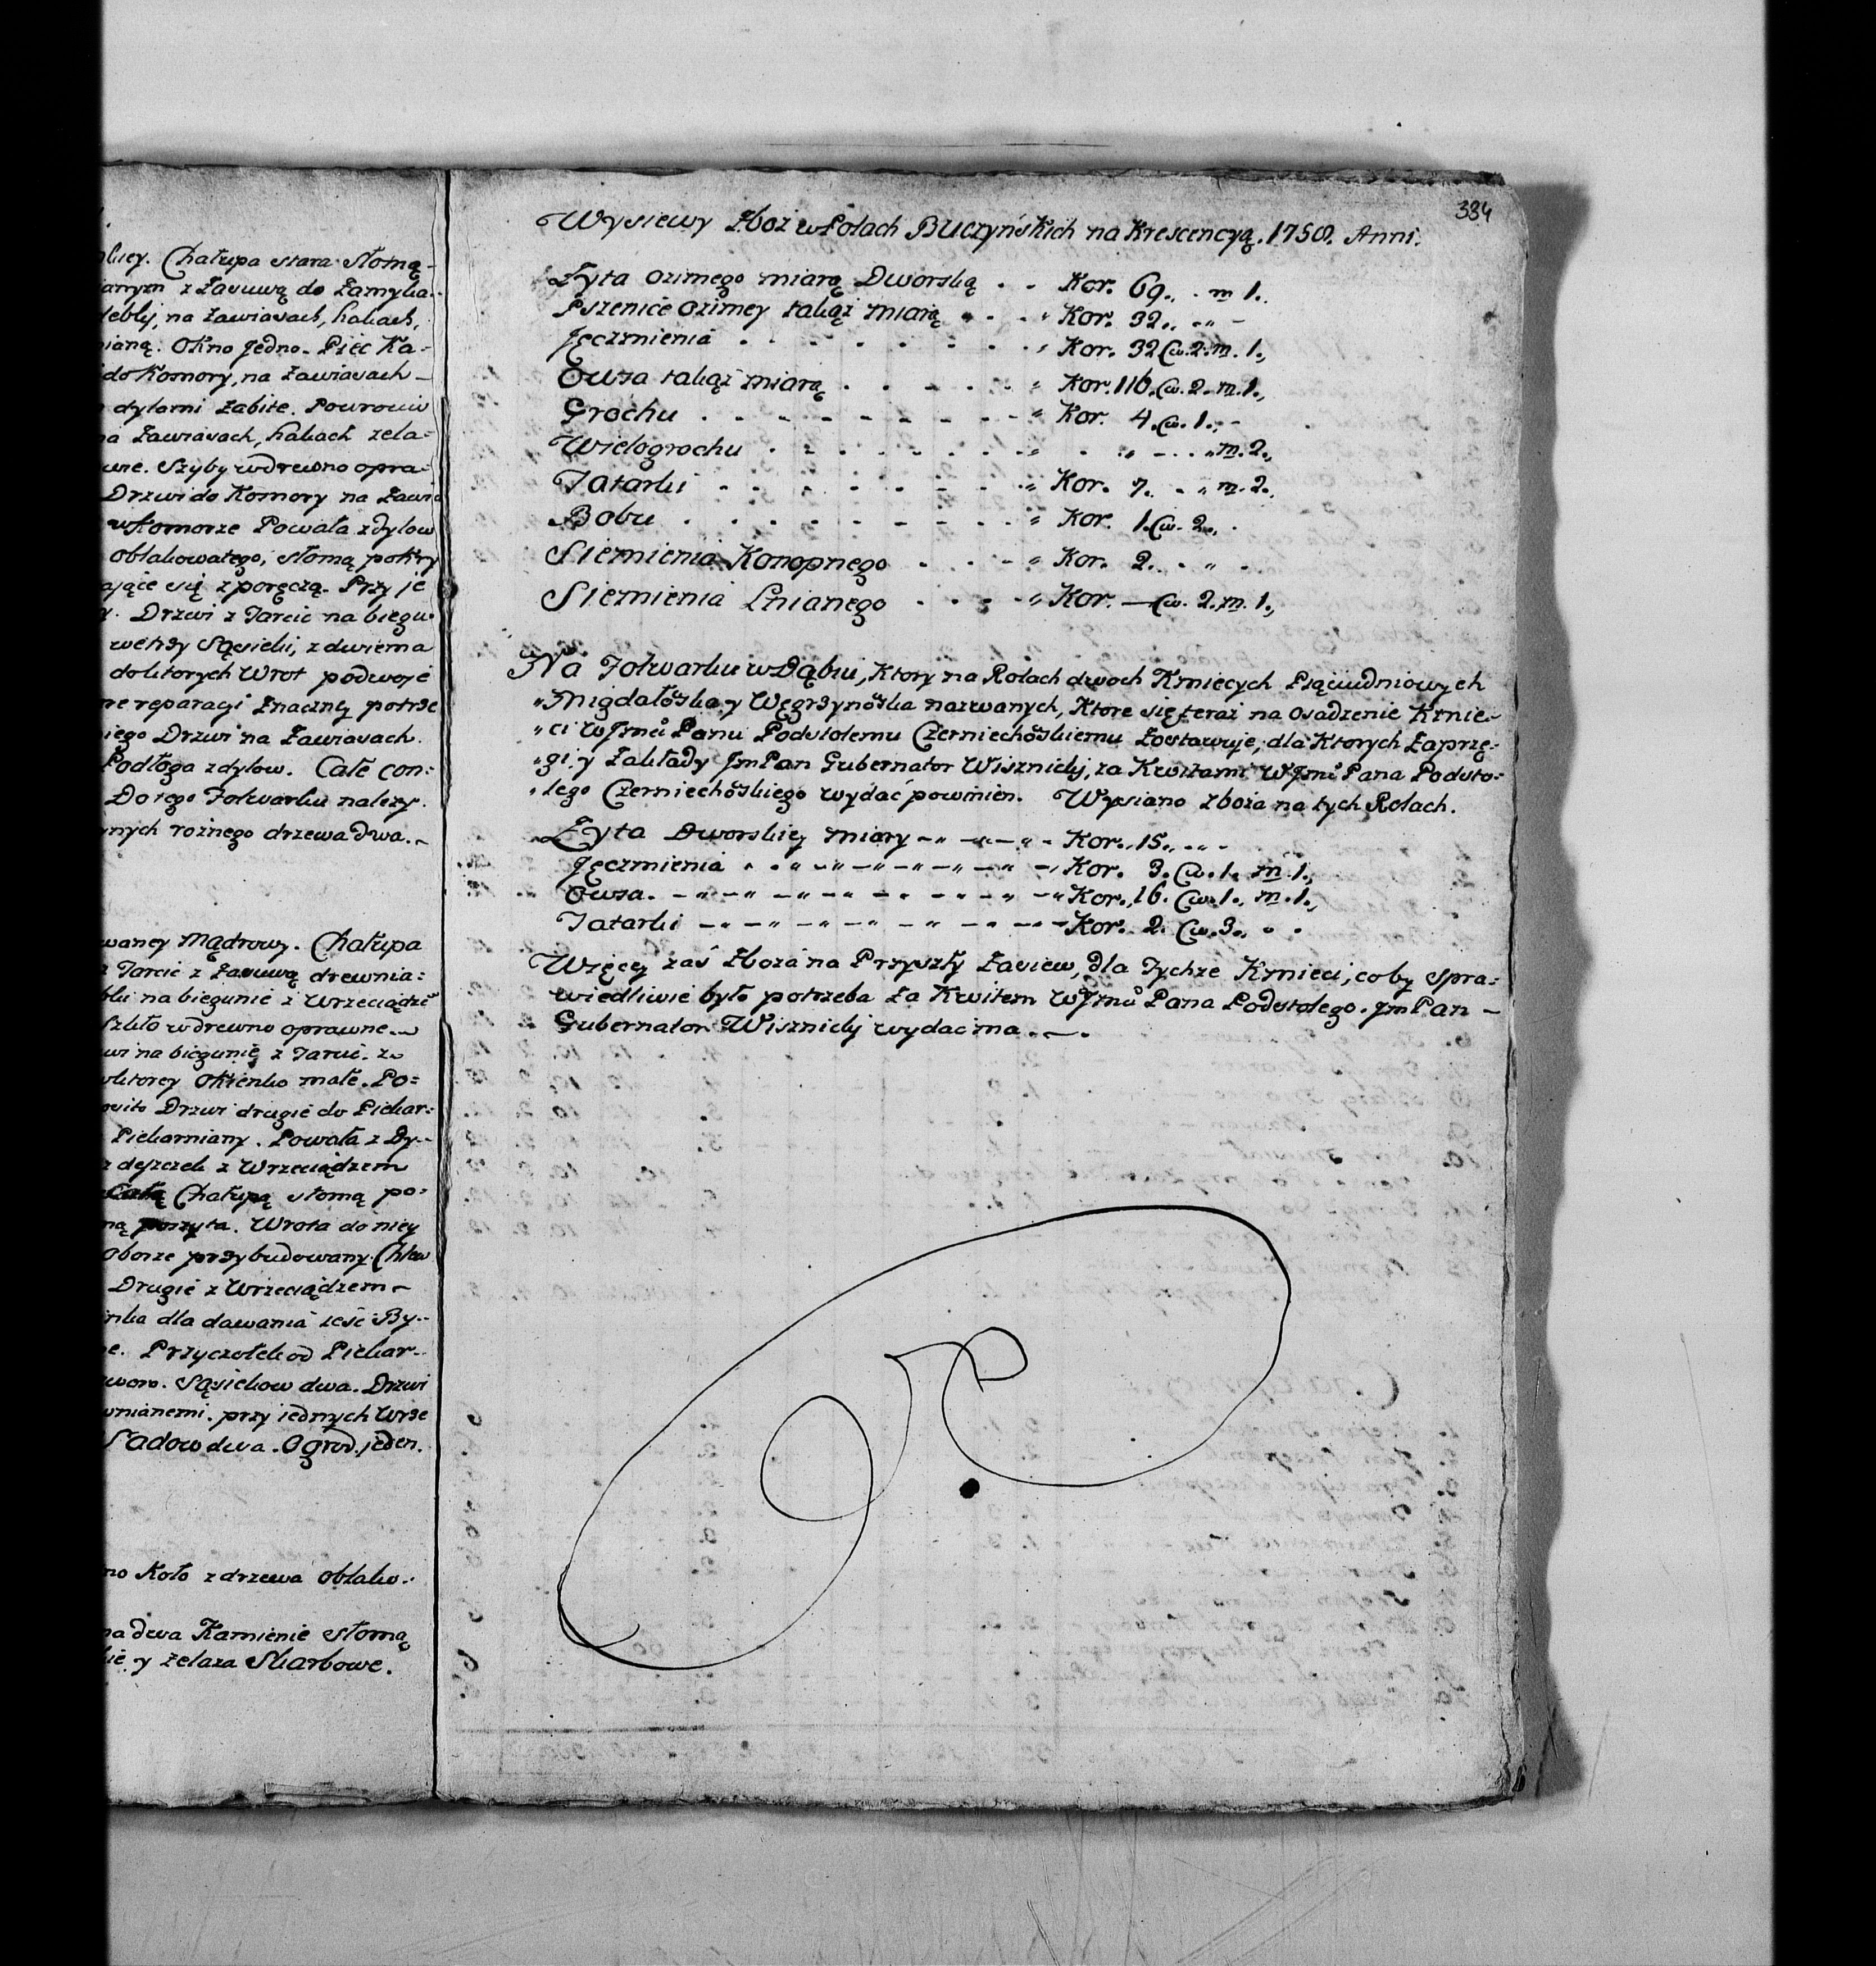 bliey. Chałupa stara słomą-
anym z Zasuwą do Zamyka-
deblij, na Zawiasach, hakach,
ianą. Okno Jedno. Piec Ka-
do Komory, na Zawiasach-
dylami Zabite. Powrowie
na Zawiasach, hakach zela-
wne. Szyby w drewno opra-
Drzwi do Komory na Zawi
w Komorze Powała z dylow
Oblakowatego, słomą pokry
ające się z poręczą. Przy je
Drzwi z Tarcic na biegu-
wetrzy Sąsieki, z dwiema
doktorych Wrot podwoje
ne reparacyi Znaczney potrze
iego Drzwi na Zawiasach.
Podłoga z dylow. Całe con:
Do tego Folwarku nalezy.
ynych roznego drzewa dwa.~
waney Mądrowy. Chałupa
z Tarcic z Zasuwą drewnia:
blu na biegunie z Wrzeciądze
Szkło w drewno oprawne.~
wi na biegunie z Tarcic. z~
w ktorey Okienko małe. Po=
Drzwi drugie do Piekar:
Piekarniany. Powała z Dy-
z deszczek z Wrzeciądzem
Całą Chałupą słomą po:
ną poszyta. Wrota do niey
Oborze przybudowany Chlew
Drugie z Wrzeciądzem~
inka dla dawania ieść By-
ne. Przyczołek od Piekar-
worw. Sąsiekow dwa. Drzwi
wnianemi. przy iednych Wrze
Sadow dwa. Ogrod jeden.
no Koło z drzewa Oblako:
na dwa Kamienie słomą
kie y zelaza Skarbowe.
384
Wysiewy Zboz w Polach Buczyńskich na Krescencyą. 1758. Anni.
Zyta Ozimego miarą Dworską . . Kor. 69.. . m 1..
Pszenice Ozimey takąż miarą " . . " Kor. 32.. .." -
Jęczmienia . . . . . . . . " Kor. 32 Cw. 2. m. 1.,
Owsa takąż miarą . . . . . " Kor. 116. Cw. 2. m. 1.,
Grochu . . . . . . . . . " Kor. 4. Cw. 1., -
Wielogrochu . . . . . . . . " . " - . " m. 2.,
Tatarki . . . . . . . . " Kor. 7. . " m. 2.,
Bobu . . . . . . . . . " Kor. 1. Cw. 2., .
Siemienia Konopnego . . . " Kor. 2. . " .
Siemienia Lnianego . . . . " Kor. — Cw. 2. m. 1.,
Na Folwarku w Dąbiu, Ktory na Rolach dwoch Kmiecych Pięciudniowych
" Migdałoska y Węgrzynoska nazwanych, Ktore się teraz na Osadzenie Kmie-
" ci WJmu Panu Podstolemu Czerniechoskiemu Zostawuje, dla Ktorych Zaprzę-
" gi y Zakłady Jm Pan Gubernator Wisznicky, za Kwitami WJmu Pana Podsto-
" lego Czerniechoskiego wydać powinien. Wysiano Zboza na tych Rolach.
Zyta Dworskiey miary - " - " - " - Kor., 15., .. -
Jęczmienia . . " - " - " - " - " - Kor. 3. Cw. 1. m 1.,
Owsa. - " - " - " - " - " - " Kor., 16. Cw. 1., m. 1.,
Tatarki - " - " - " - " - " - Kor. 2. Cw. 3., . .
Więcey zaś Zboza na Przyszły Zasiew, dla Tychze Kmieci, co by spra:
wiedliwie było potrzeba Za Kwitem WJmu Pana Podstolego. Jm Pan -
Gubernator Wisznicky wydać ma. —.